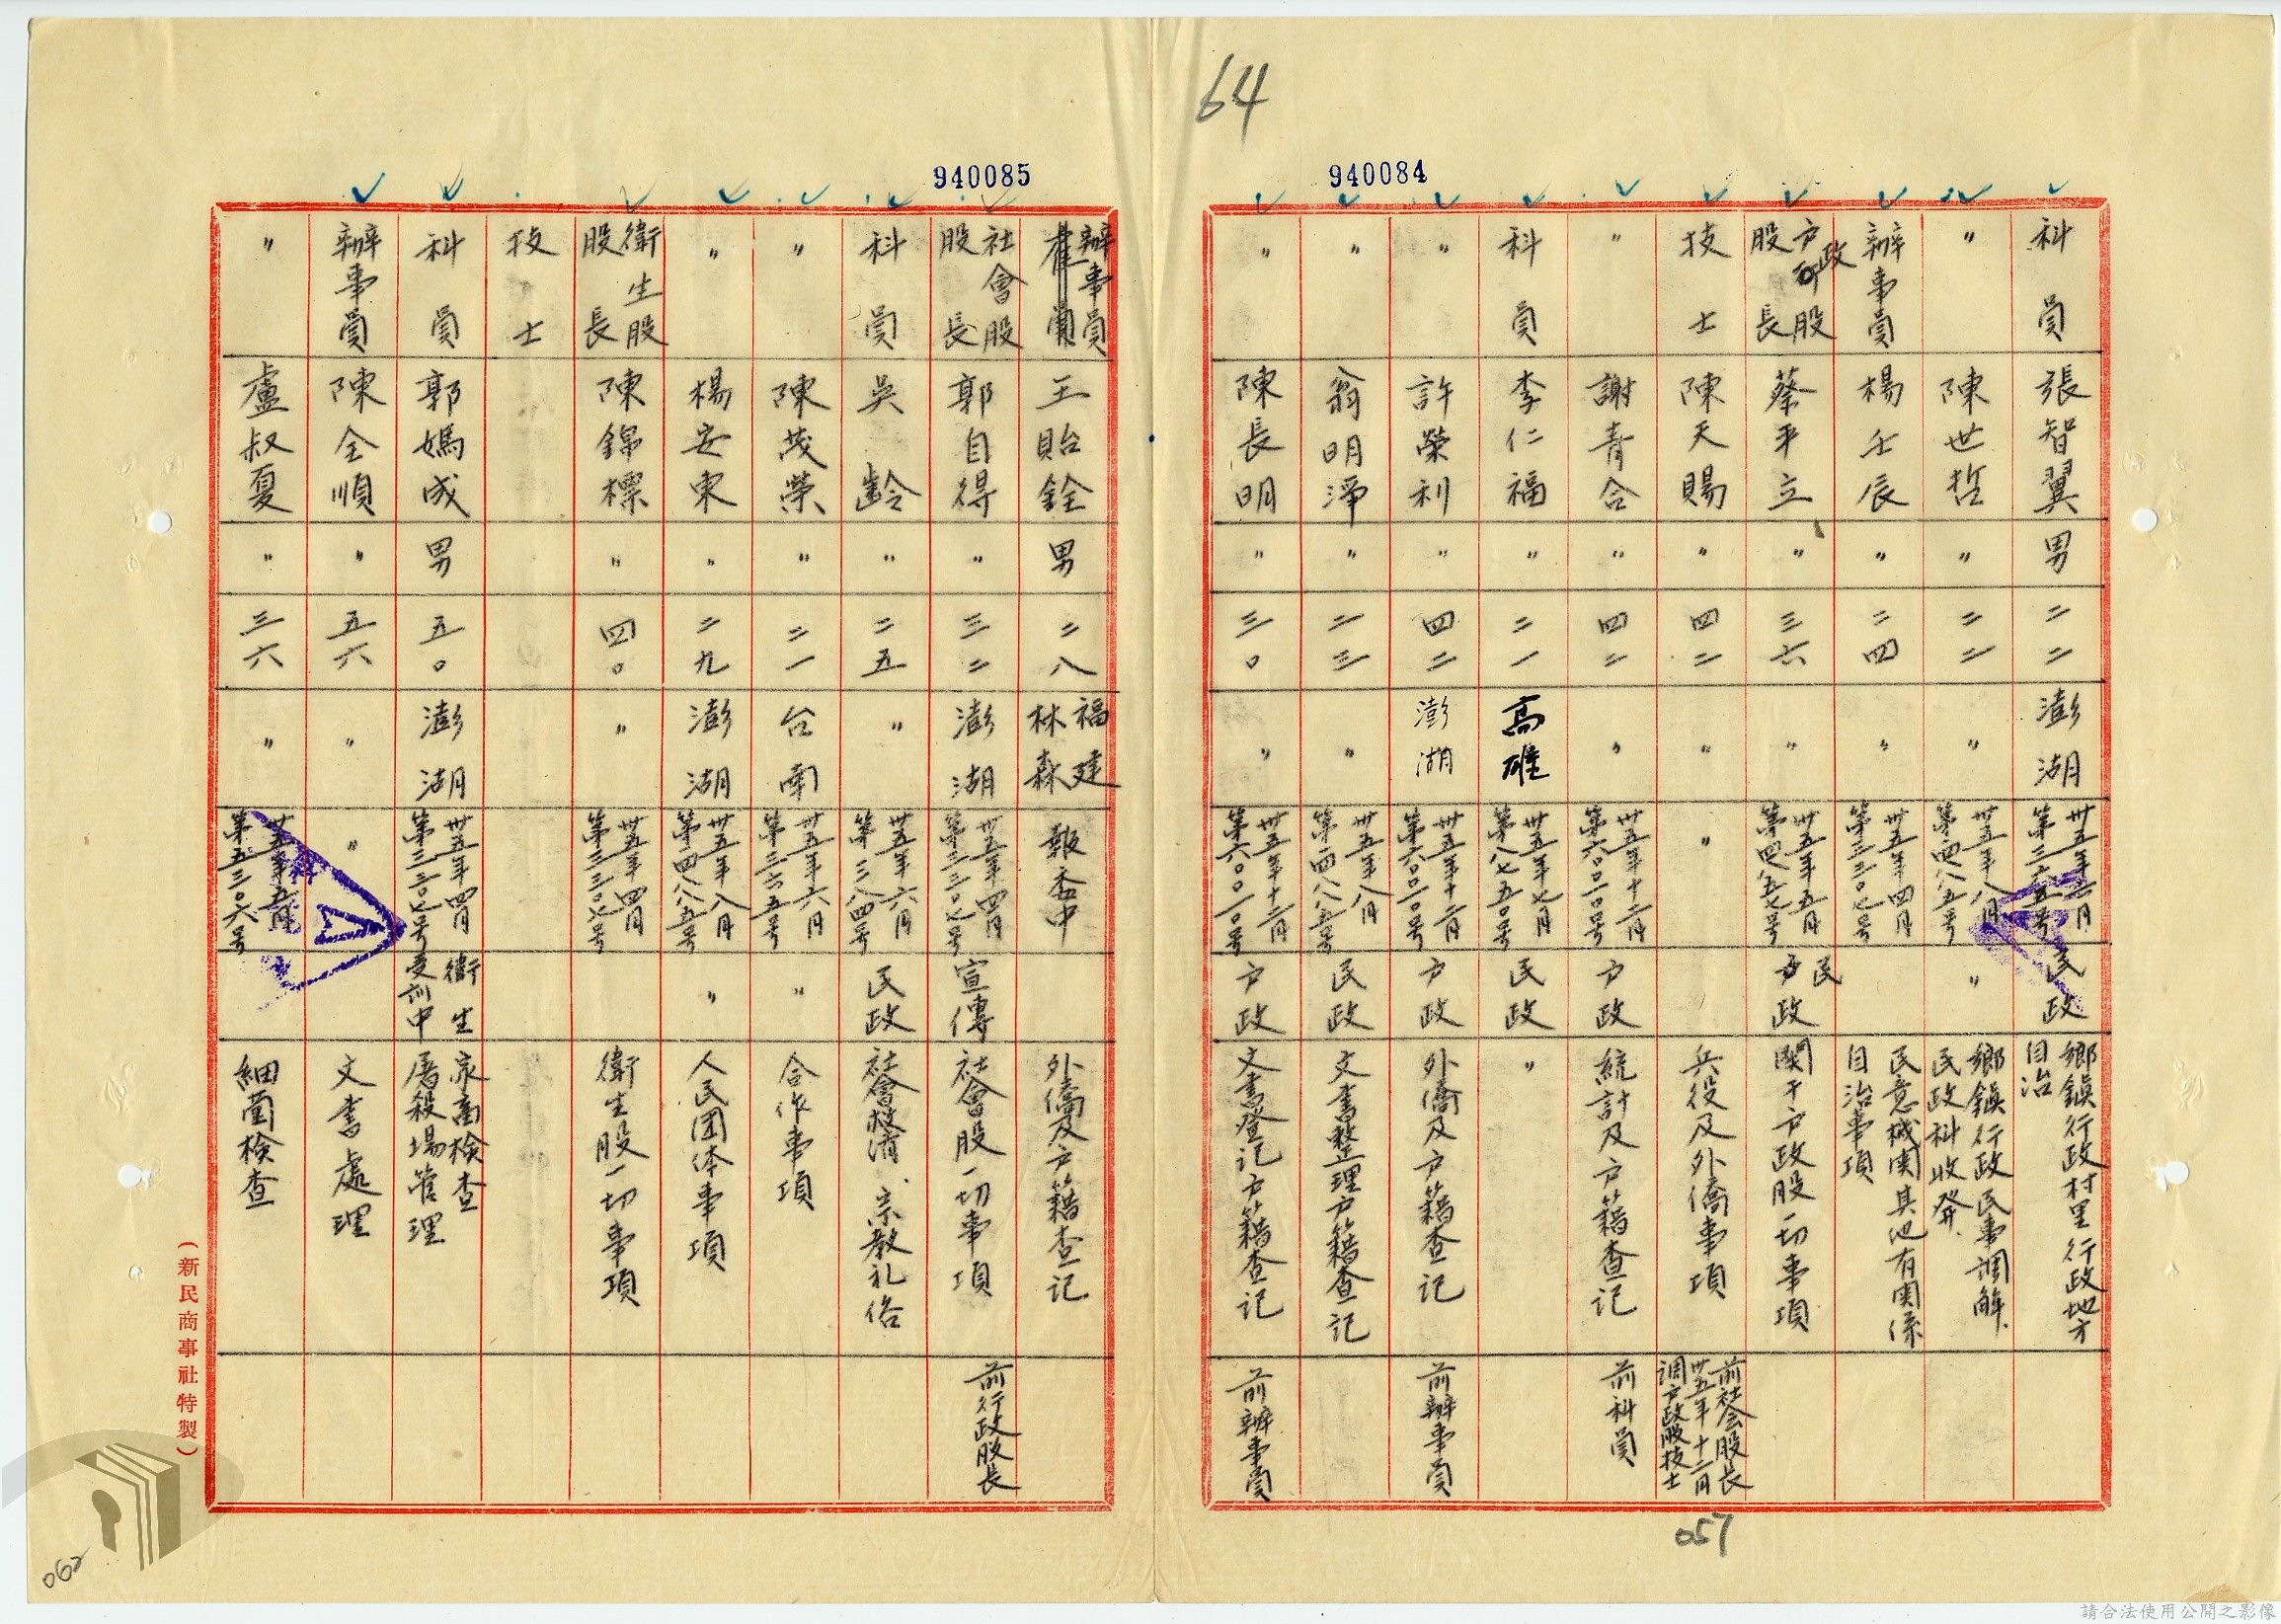 64
940084
科員 張智翼 男 二二 澎湖 卅五年六月第三六五号 民政 鄉鎮行政村里行政地方自治
〃 陳世哲 〃 二二 〃 卅五年八月第四八八五号 〃 鄉鎮行政民事調解、民政科收發、
辦事員 楊壬辰 〃 二四 〃 卅五年四月第三三〇七号 民意機関其他有関係自治事項
户政股股長 蔡平立 〃 三六 〃 卅五年五月第四八五七号 民政 関于户政股一切事項
技士 陳天賜 〃 四二 〃 〃 兵役及外僑事項 前社会股長卅五年十二月調户政股技士
〃 謝青合 〃 四二 〃 卅五年十二月第六〇〇二〇号 户政 統計及户籍查记 前科員
科員 李仁福 〃 二一 高雄 卅五年七月第八七五〇号 民政 〃
〃 許榮利 〃 四二 澎湖 卅五年十二月第六〇〇二〇号 户政 外僑及户籍查记 前辦事員
〃 翁明淨 〃 二三 〃 卅五年八月第四八八五号 民政 文書整理户籍查记
〃 陳長明 〃 三〇 〃 卅五年十二月第六〇〇二〇号 户政 文書登记户籍查记 前辦事員
057
940085
辦事員 王貽銓 男 二八 福建林森 報委中 外僑及户籍查记
社會股股長 郭自得 〃 三二 澎湖 卅五年四月第三三〇七号 宣傳 社會股一切事項 前行政股長
科員 吳齡 〃 二五 〃 卅五年六月第三八四号 民政 社會救濟、宗教礼俗
〃 陳茂榮 〃 二一 台南 卅五年六月第三六五号 〃 合作事項
〃 楊安東 〃 二九 澎湖 卅五年八月第四八八五号 〃 人民团体事項
衛生股股長 陳錦標 〃 四〇 〃 卅五年四月第三三〇七号 衛生股一切事項
技士
科員 郭媽成 男 五〇 澎湖 卅五年四月第三三〇七号 衛生受訓中 家畜檢查屠殺場管理
辦事員 陳全順 〃 五六 〃 〃 文書處理
〃 盧叔夏 〃 三六 〃 卅五年五月第五三〇六号 細菌檢查
（新民商事社特製）
062
請合法使用公開之影像